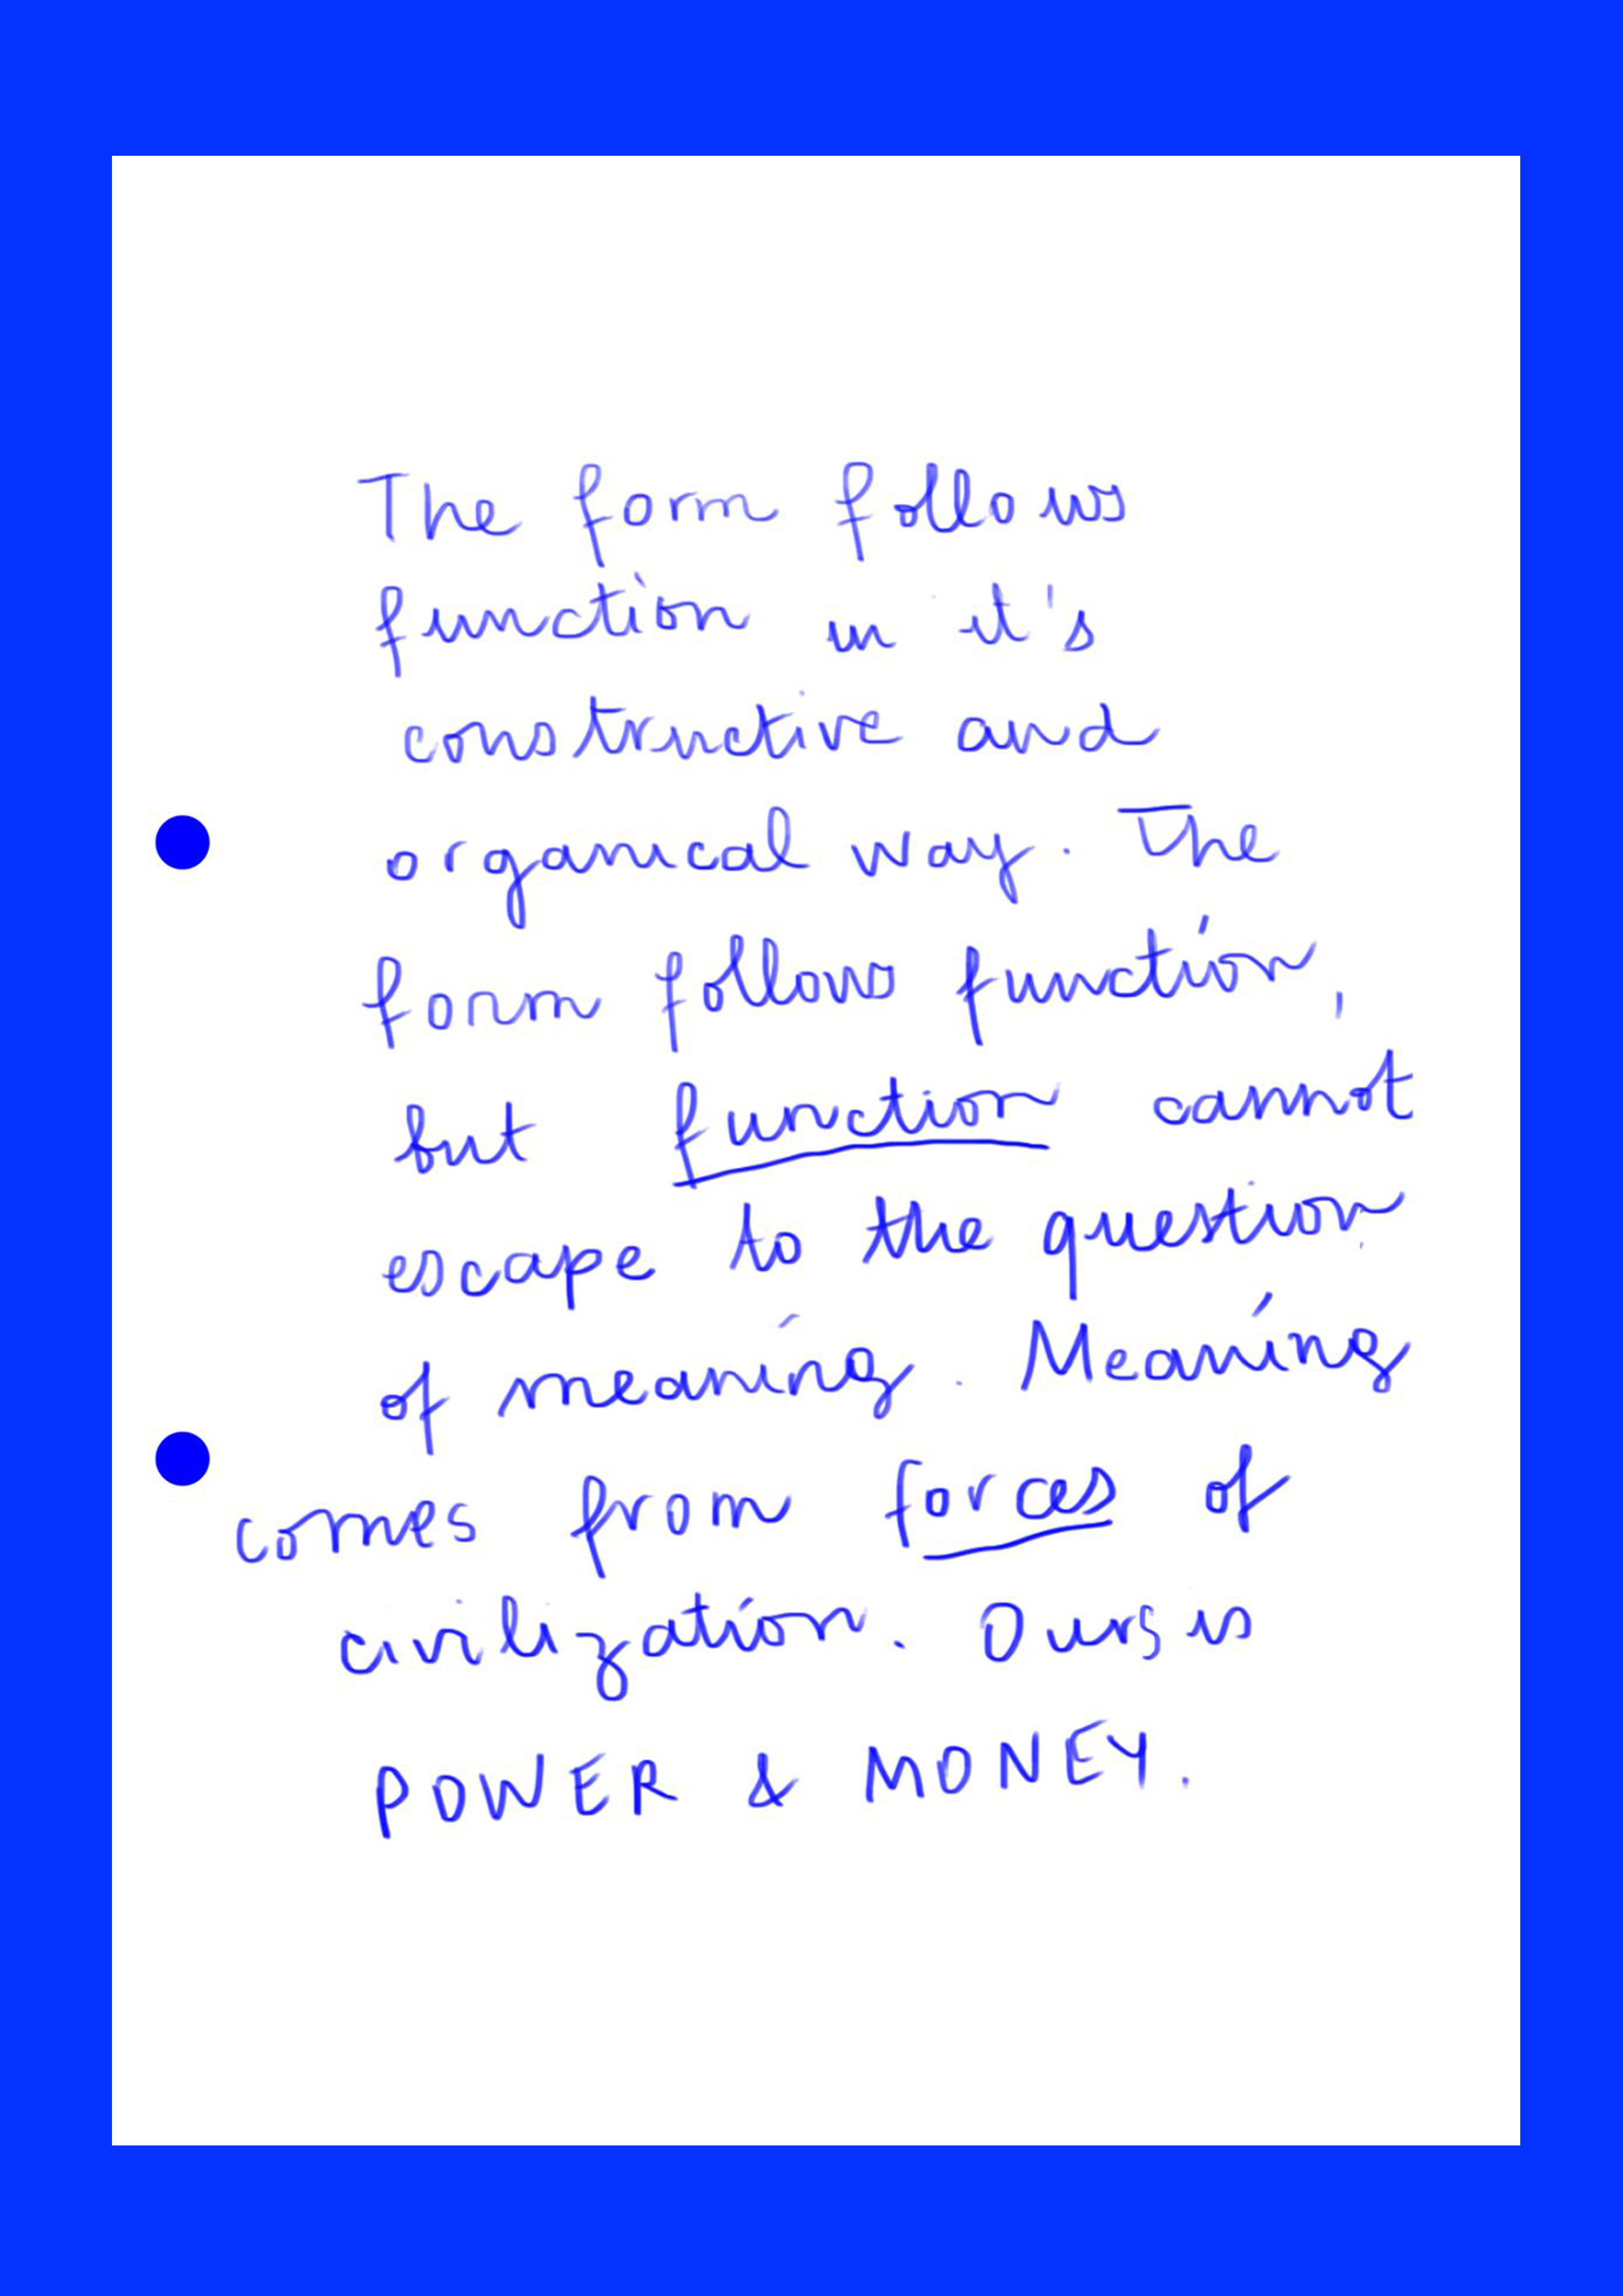 The form follows
function in it's
constructive and
organical way. The
form follows function,
but function cannot
escape to the question
of meaning. Meaning
comes from forces of
civilization. Ours is
POWER & MONEY.